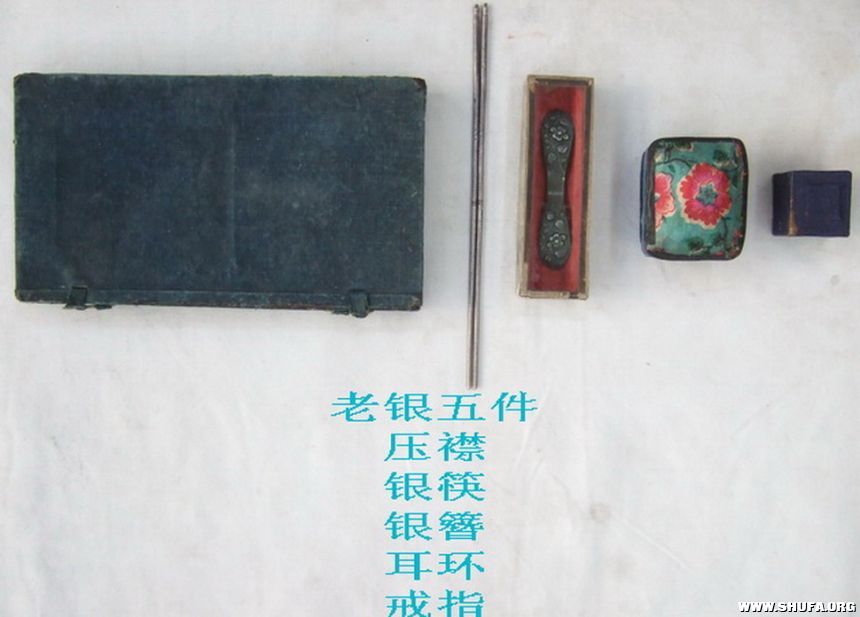 老银五件
压襟
银筷
银簪
耳环
戒指
WWW.SHUFA.ORG